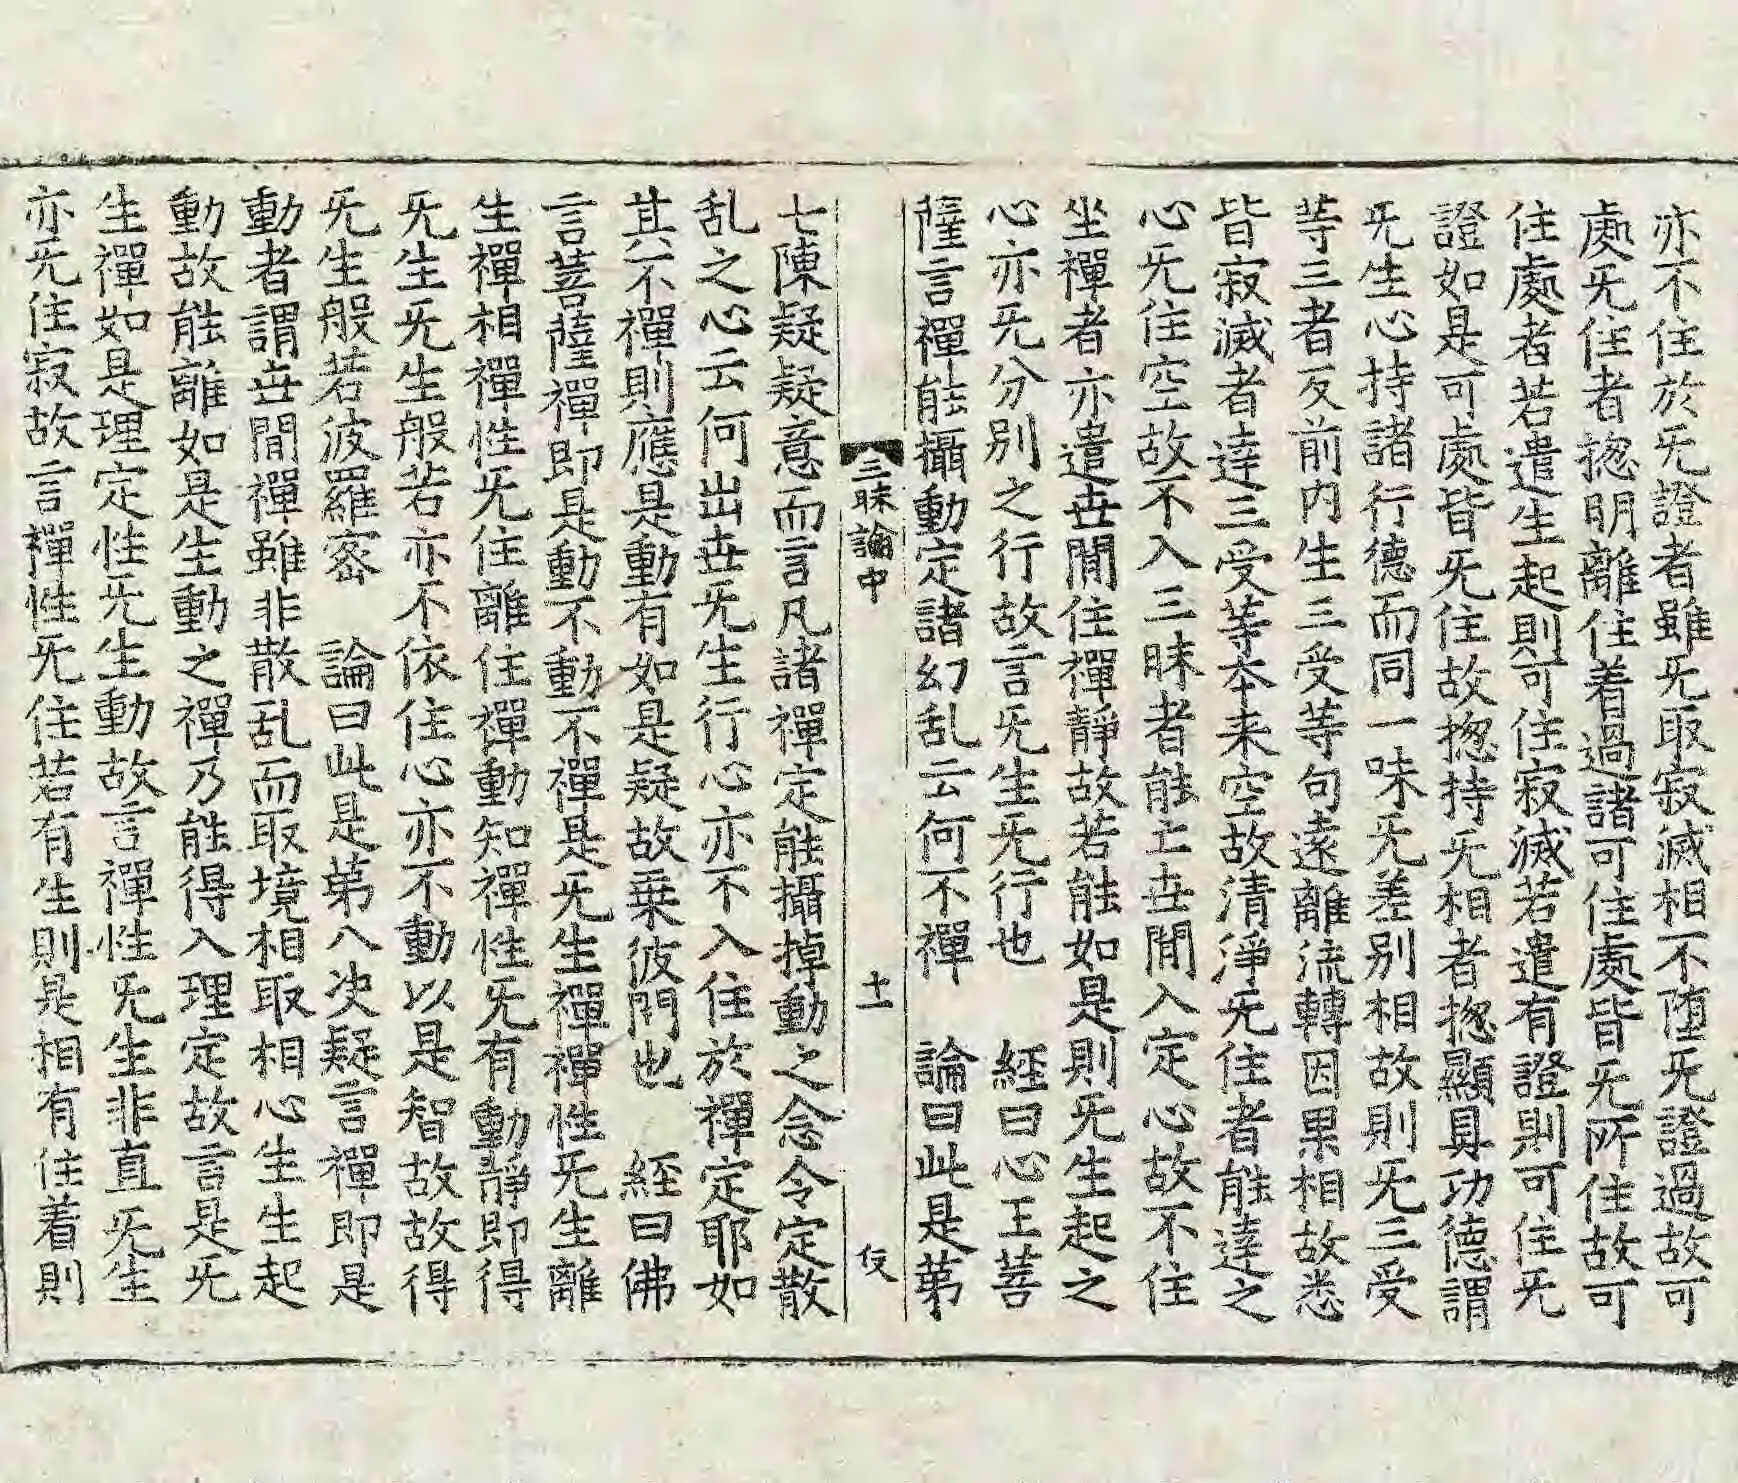 亦不住於无證者雖无取寂滅相不墮无證過故可
處无住者揔明離住着過諸可住處皆无所住故可
住處者若遣生起則可住寂滅若遣有證則可住无
證如是可處皆无住故揔持无相者揔顯具功德謂
无生心持諸行德而同一味无差别相故則无三受
等三者反前内生三受等句遠離流轉因果相故悉
皆寂滅者達三受等本来空故清淨无住者能達之
心无住空故不入三昧者能亡世間入定心故不住
坐禪者亦遣世間住禪靜故若能如是則无生起之
心亦无分别之行故言无生无行也　經曰心王菩
薩言禪能攝動定諸幻乱云何不禪　論曰此是第
三昧論中　十一　伎
七陳疑疑意而言凡諸禪定能攝掉動之念令定散
乱之心云何出世无生行心亦不入住於禪定耶如
其不禪則應是動有如是疑故乗彼問也　經曰佛
言菩薩禪即是動不動不禪是无生禪禪性无生離
生禪相禪性无住離住禪動知禪性无有動靜即得
无生无生般若亦不依住心亦不動以是智故故得
无生般若波羅密　論曰此是第八决疑言禪即是
動者謂世間禪雖非散乱而取境相取相心生生起
動故能離如是生動之禪乃能得入理定故言是无
生禪如是理定性无生動故言禪性无生非直无生
亦无住寂故言禪性无住若有生則是相有住着則